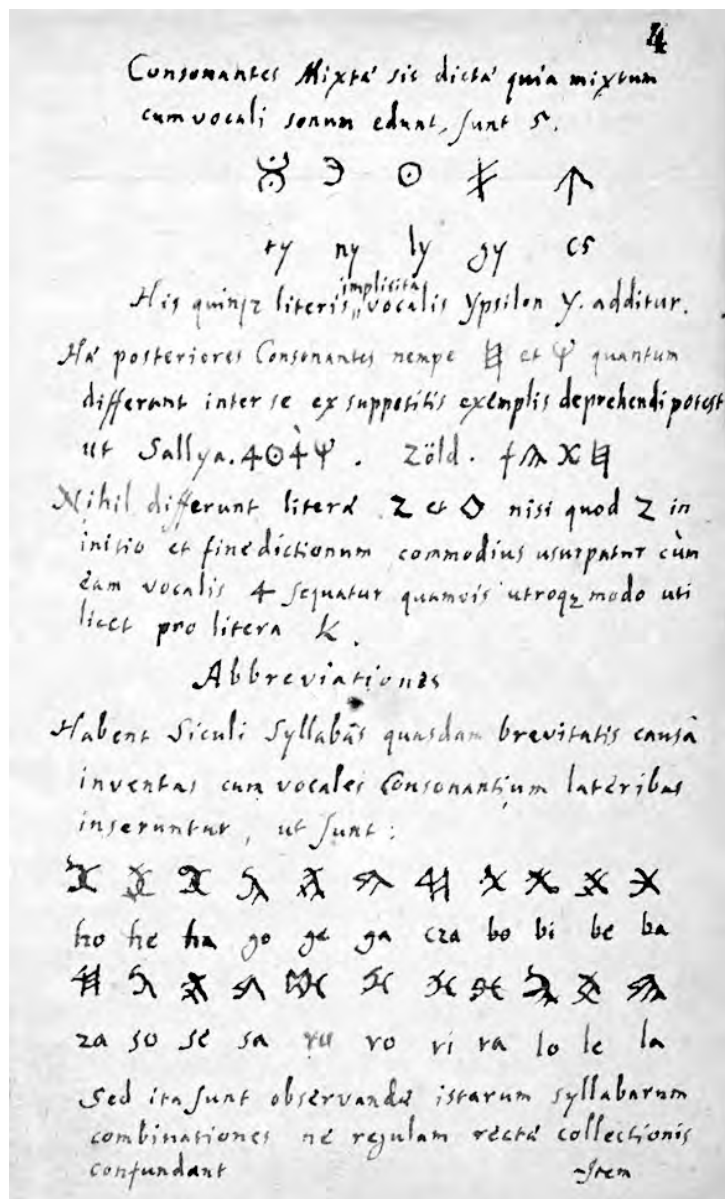 4
Consonantes Mixtæ sic dictæ quia mixtum
cum vocali sonum edunt, sunt 5.
ty ny ly gy cs
implicita
His quinqz literis vocalis Ypsilon Y. additur.
Hæ posteriores Consonantes nempe et quantum
differant inter se ex suppositis exemplis deprehendi potest
ut Sallya. . Zöld.
Nihil differunt literæ Z et ◇ nisi quod Z in
initio et fine dictionum commodius usurpatur cùm
eam vocalis sequatur quamvis utroqz modo uti
licet pro litera K.
Abbreviationes
Habent Siculi Syllabas quasdam brevitatis causâ
inventas cum vocales Consonantium lateribus
inseruntur, ut sunt:
ho he ha go ge ga cza bo bi be ba
za so se sa ru ro ri ra lo le la
Sed ita sunt observandæ istarum syllabarum
combinationes ne regulam rectæ collectionis
confundant Item